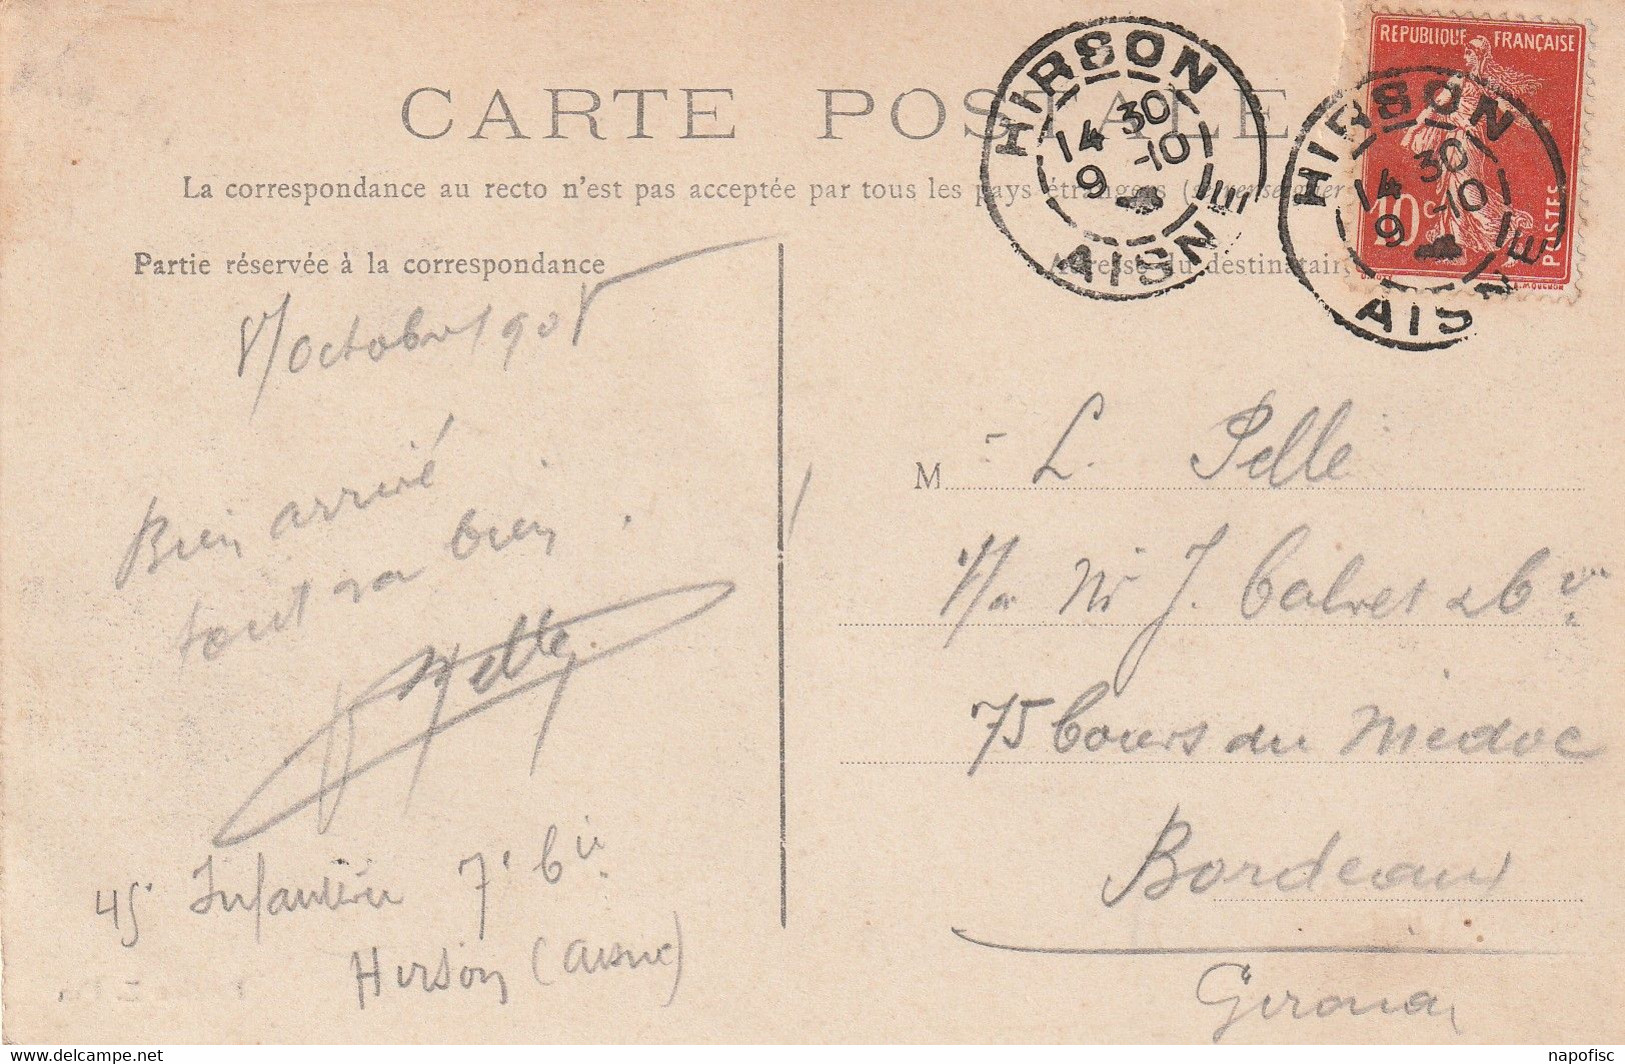 CARTE POSTALE
La correspondance au recto n'est pas acceptée par tous les pays étrangers (se renseigner
Partie réservée à la correspondance
Adresse du destinataire
HIRSON
14 30
9 -10
AISNE
HIRSON
14 30
9 -10
AISNE
REPUBLIQUE FRANÇAISE
10c
POSTES
octobre 190
Bien arrivé
tout va bien.
Pelle
45e Infanterie 7e Cie
Hirson (Aisne)
M L. Pelle
Mr J. Calvet & Cie
75 Cours du Médoc
Bordeaux
Gironde
www.delcampe.net
napofisc